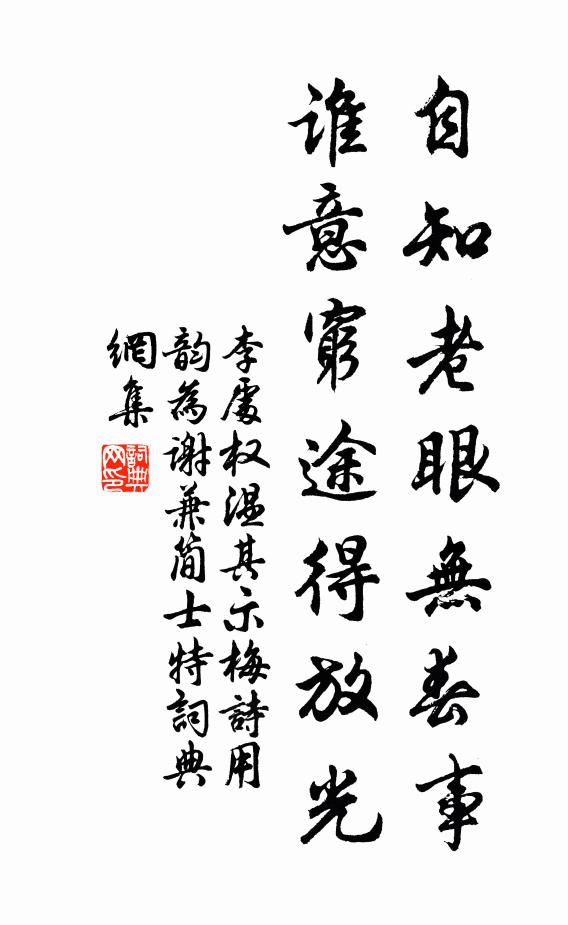 自知老眼無春事
誰意窮途得放光
李處权溫其示梅詩用
韵為謝兼简士特詞典
網集
詞典网印